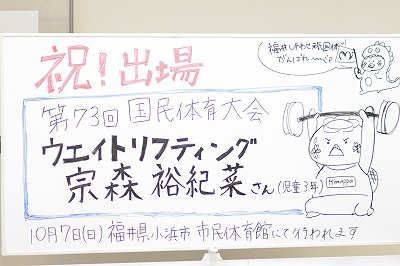 祝!出場
福井しあわせ元気国体
がんばれ〜♪
第73回 国民体育大会
ウエイトリフティング
宗森 裕紀菜さん(児童3年)
Mimappa
10月7日(日) 福井県小浜市 市民体育館にて行われます